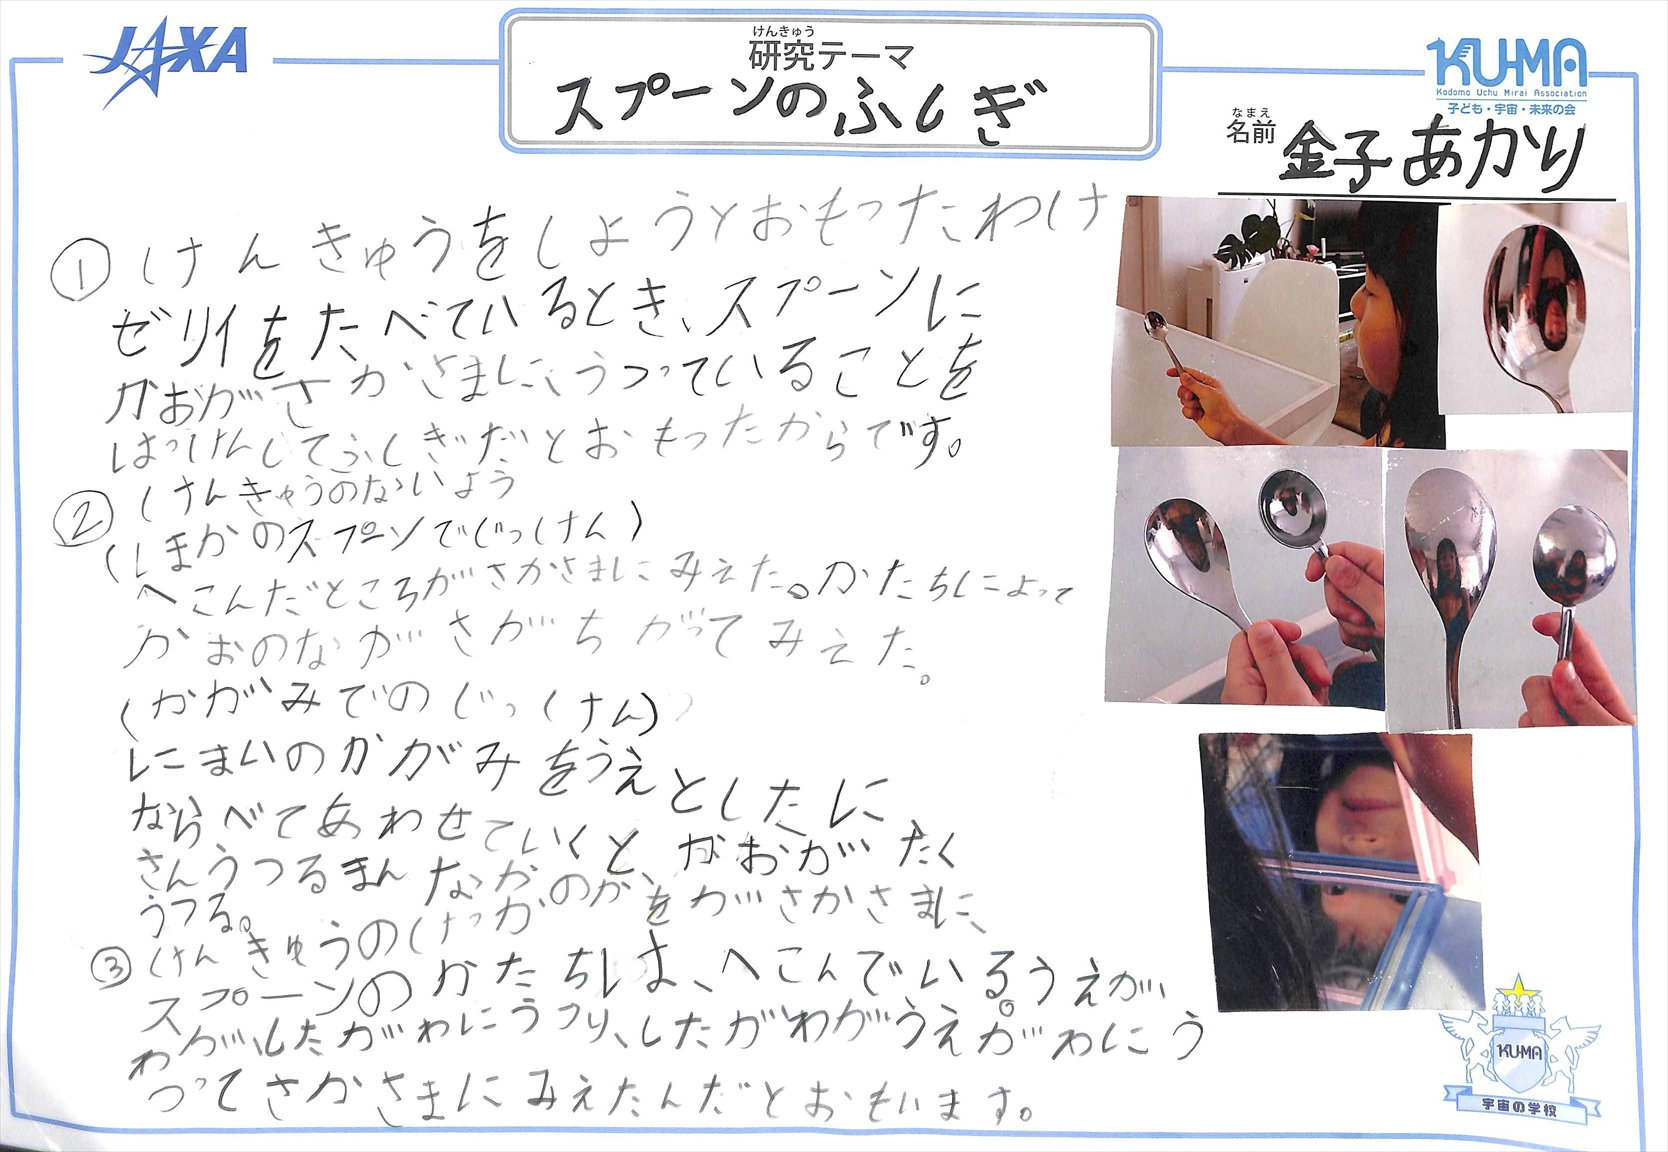 JAXA
けんきゅう
研究テーマ
スプーンのふしぎ
KU-MA
Kodomo Uchu Mirai Association
子ども・宇宙・未来の会
なまえ
名前 金子あかり
① けんきゅうをしようとおもったわけ
ゼリイをたべているとき、スプーンに
かおがさかさまに、うつっていることを
はっけんしてふしぎだとおもったからです。
② けんきゅうのないよう
(ほかのスプーンでじっけん)
へこんだところがさかさまにみえた。かたちによって
かおのながさがちがってみえた。
(かがみでのじっけん)
にまいのかがみをうえとしたに
ならべてあわせていくと、かおがたく
さんうつるまんなかのかをがさかさまに、
うつる。
③ けんきゅうのけっか
スプーンのかたちは、へこんでいる。うえが
わが、したがわにうつり、したがわがうえがわにう
つってさかさまにみえたんだとおもいます。
KU-MA
宇宙の学校